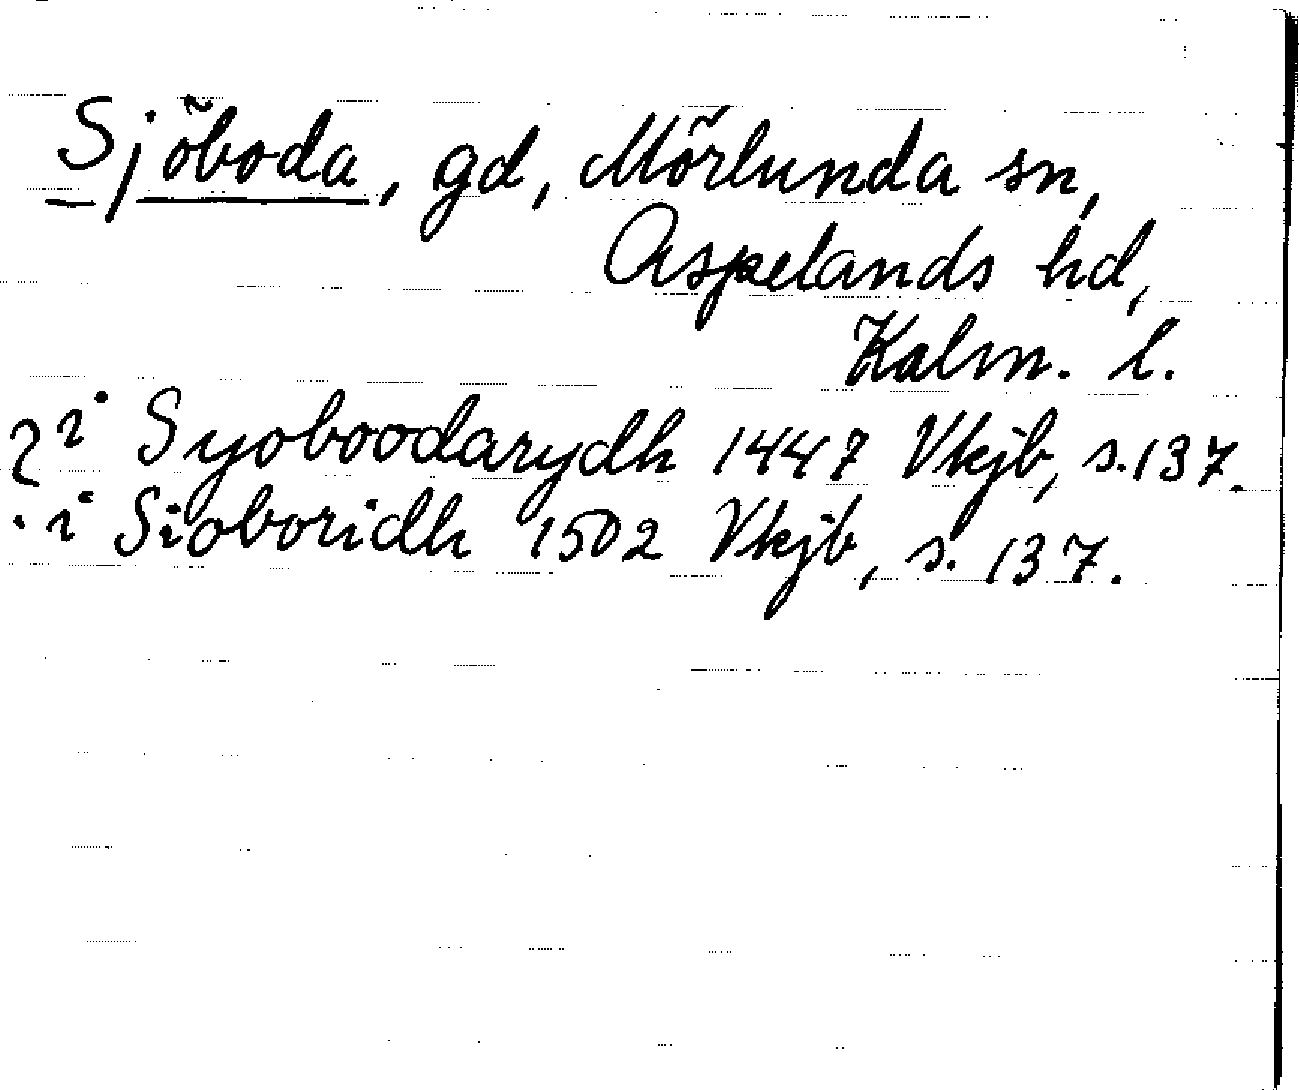 Sjöboda, gd, Mörlunda sn,
Aspelands hd,
Kalm. l.
? i Syoboodarydh 1447 Vkjb, s. 137.
i Sioboridh 1502 Vkjb, s. 137.